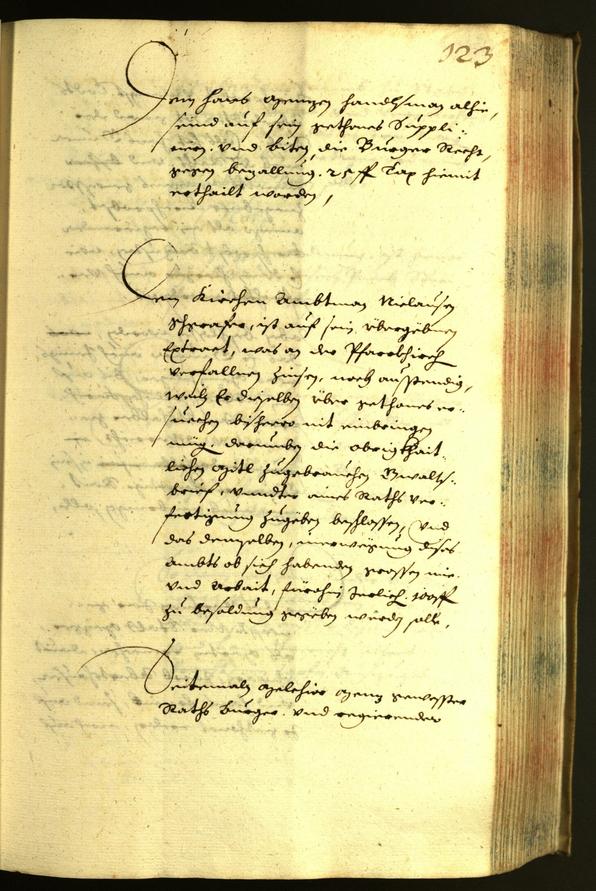 123
Dem Hans Menzen Handlsman alhie,
seind auf sein gethones Suppli:
ciern, und biten, die Burger Recht,
gegen bezallung 25 fl Tax hiemit
ertheilt worden,
Dem Kirchen Ambtman Niclausen
ist auf sein übergebnen
Extract, was an der Pfarrkhirch
verfallnen Zinsen, noch ausstendig,
weil Er dieselben über gethones er:
suechen bishero nit einbringen
müg, darumben die obrigkhait:
lichen Mitl zugebrauchen Gwalts:
brief, undter aines Raths ver:
fertigung zugeben beschlossen, und
das demselben, in dises
Ambts ob sich habenden grossen mie
und Arbait, fürohin Jerlich 100 fl
zu besoldung gegeben werden solle,
Seitemaln Melchior Menz gewesster
Raths burger und regierender